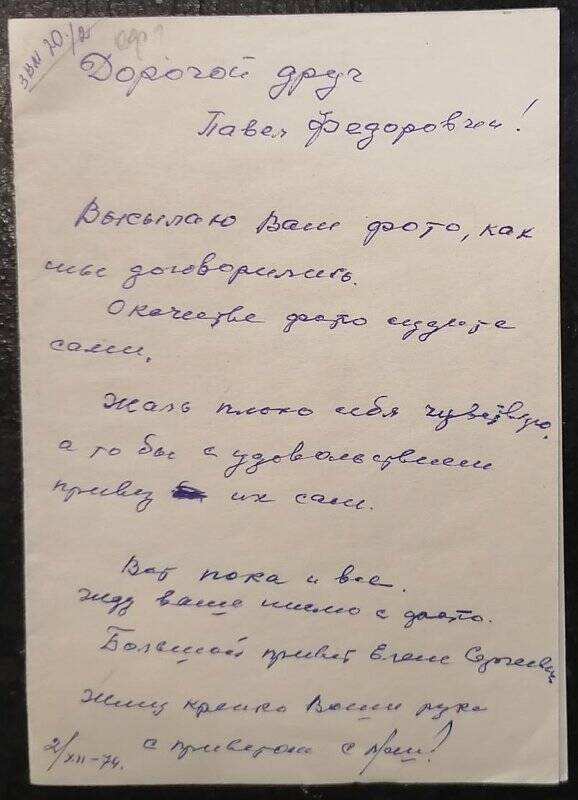 Дорогой друг
Павел Федорович!
Высылаю Вам фото, как
мы договорились.
О качестве фото судите
сами.
Жаль плохо себя чувствую,
а то бы с удовольствием
привез их сам.
Вот пока и все.
Жду ваше письмо с фото.
Большой привет Елене Сергеевне
Жму крепко Ваши руки
с приветом
2/XII-74.